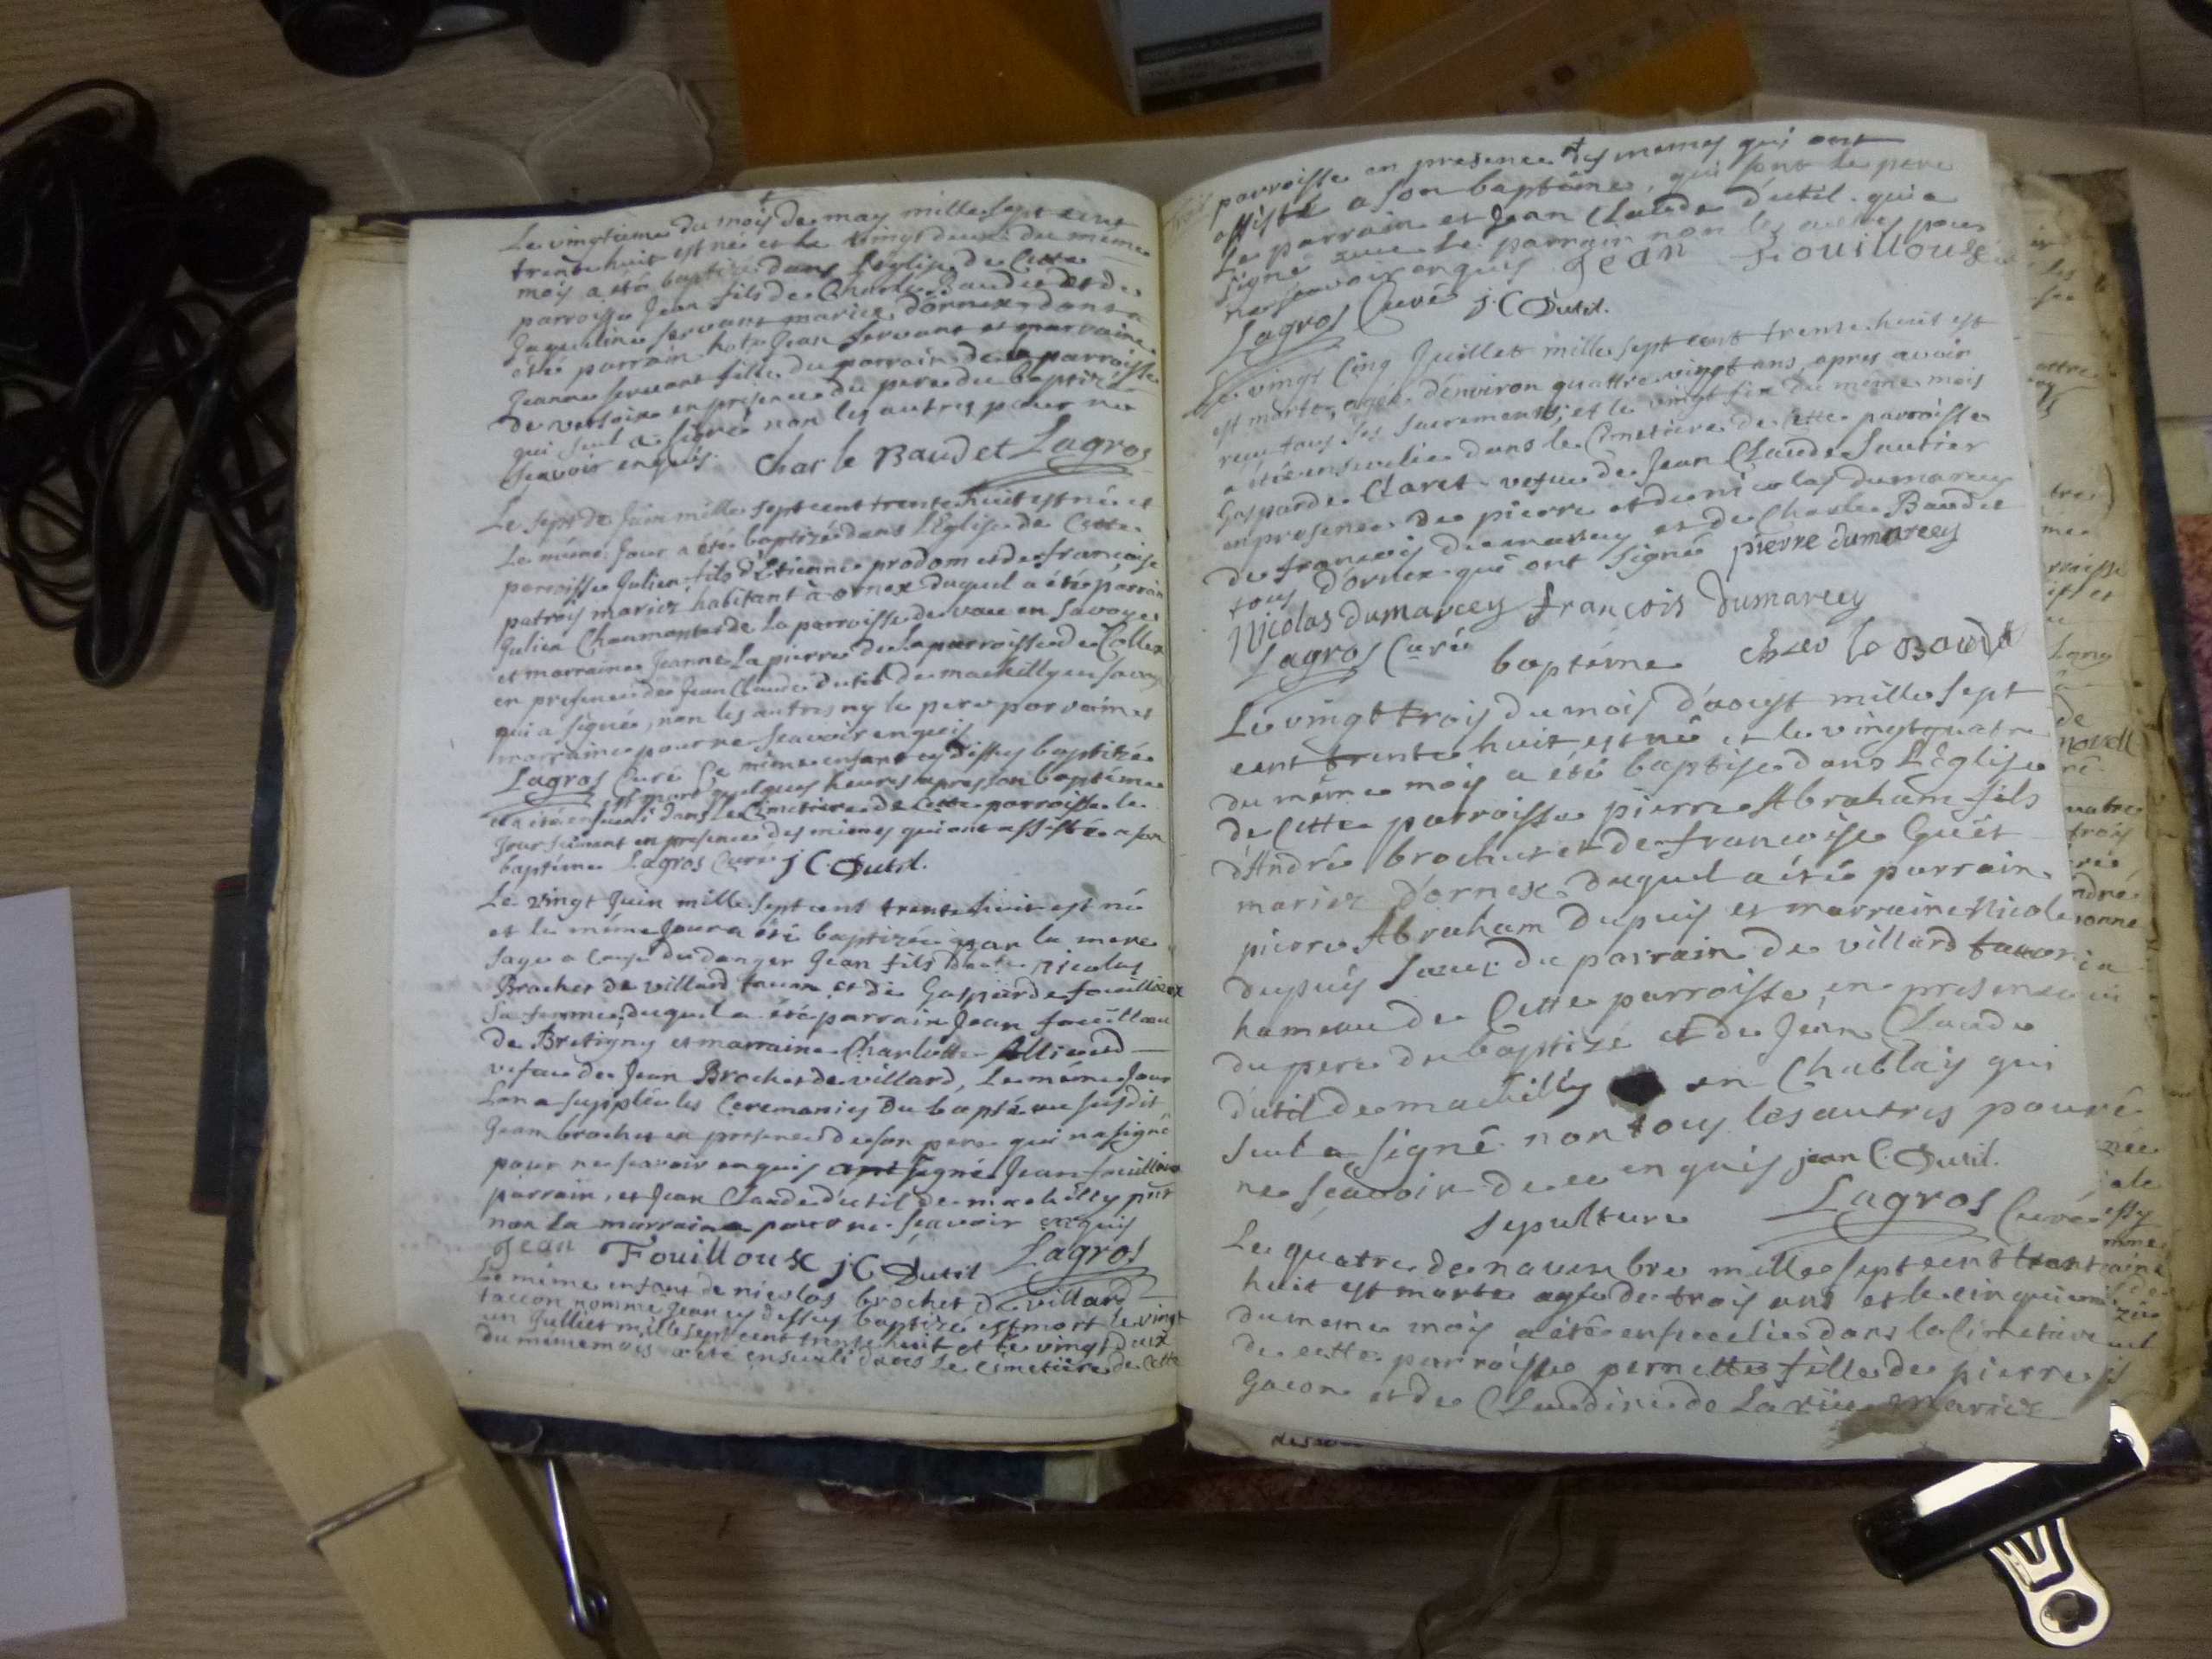 Le vingtieme du mois de may mille sept cent
trente huit est né et le vingt deux du meme
mois a été baptizé dans l'Eglise de Cette
parroisse Jean fils de Charle Baudet et de
Jaqueline servant mariez d'ornex dont a
été parrain Jean servant et marraine
Jeanne servant fille du parrain de la parroisse
de versoix en presence du pere du baptizé
qui seul a signé non les autres pour ne
sçavoir enquis. Charle Baudet Lagros
Le sept de Juin mille sept cent trente huit est né et
le même Jour a été baptizé dans l'Eglise de Cette
parroisse Julien fils d'Etienne prodom et de francoise
patroy mariez habitant à ornex duquel a été parrain
Julien Chaumontet de la parroisse de en Savoye
et marraine Jeanne Lapierre de la parroisse de Collex
en presence de Jean Claude Dutil de machilly en Savoye
qui a signé, non les autres ny le pere parrain et
marraine pour ne sçavoir enquis
Lagros Curé Ce même enfant cy dessus baptizé
est mort quelques heures apres son baptême
et a été enseveli dans le Cimetiere de Cette parroisse le
Jour suivant en presence des mêmes qui ont assisté a son
baptême Lagros Curé J C Dutil.
Le vingt Juin mille sept cent trente huit est né
et le même Jour a été baptizé par la mere
sage a Cause du danger Jean fils de Nicolas
Brochet de villard taccon et de Gasparde fouilloux
sa femme, duquel a été parrain Jean fouilloux
de Bretigny et marraine Charlotte
vefue de Jean Brochet de villard, Le même Jour
l'on a suppléé les Ceremonies du baptême susdit
Jean brochet en presence de son pere qui n'a signé
pour ne scavoir enquis ont signé Jean fouilloux
parrain, et Jean Claude dutil de machilly
non la marraine pour ne sçavoir enquis
Jean Fouilloux J C Dutil Lagros
Le même enfant de nicolas brochet de villard
taccon nommé Jean cy dessus baptizé est mort le vingt
un Julliet mille sept cent trente huit et le vingt deux
du même mois a été enseveli dans le Cimetiere de Cette
parroisse en presence des memes qui ont
assisté a son baptême, qui sont le pere
Le parrain et Jean Claude dutil. qui a
signé avec le parrain non les autres pour
ne scavoir enquis Jean Fouilloux
Lagros Curé J. C Dutil.
Le vingt Cinq Juillet mille sept cent trente huit est
est morte, agée d'environ quattre vingt ans, apres avoir
reçu tous les sacrements, et le vingt six du meme mois
a été ensevelie dans le Cimetiere de Cette parroisse
Gasparde Claret vefue de Jean Claude Sautier
en presence de pierre et de nicolas dumarcey
de francois dumarcey et de Charle Baudet
tous d'ornex qui ont signé pierre dumarcey
Nicolas Dumarcey françois Dumarcey
Lagros Curé baptême Charle Baudet
Le vingt trois du mois d'aoust mille sept
cent trente huit est né et le vingt quatre
du même mois a été baptisé dans L'Eglise
de Cette parroisse pierre Abraham fils
d'André brochet et de francoise Guet
mariez d'ornex duquel a été parrain
pierre Abraham Dupuis et marraine Nicole
dupuis soeur du parrain de villard taccon
hameau de Cette parroisse, en presence
du pere du baptizé et de Jean Claude
dutil de machilly en Chablay qui
seul a signé non tous les autres pour
ne sçavoir de ce enquis jean C. Dutil.
Sepulture Lagros Curé
Le quatre de novembre mille sept cent trente
huit est morte agée de trois ans et le cinquieme
du meme mois a été ensevelie dans le Cimetiere
de cette parroisse pernette fille de pierre
Gacon et de Claudine de Larue mariez